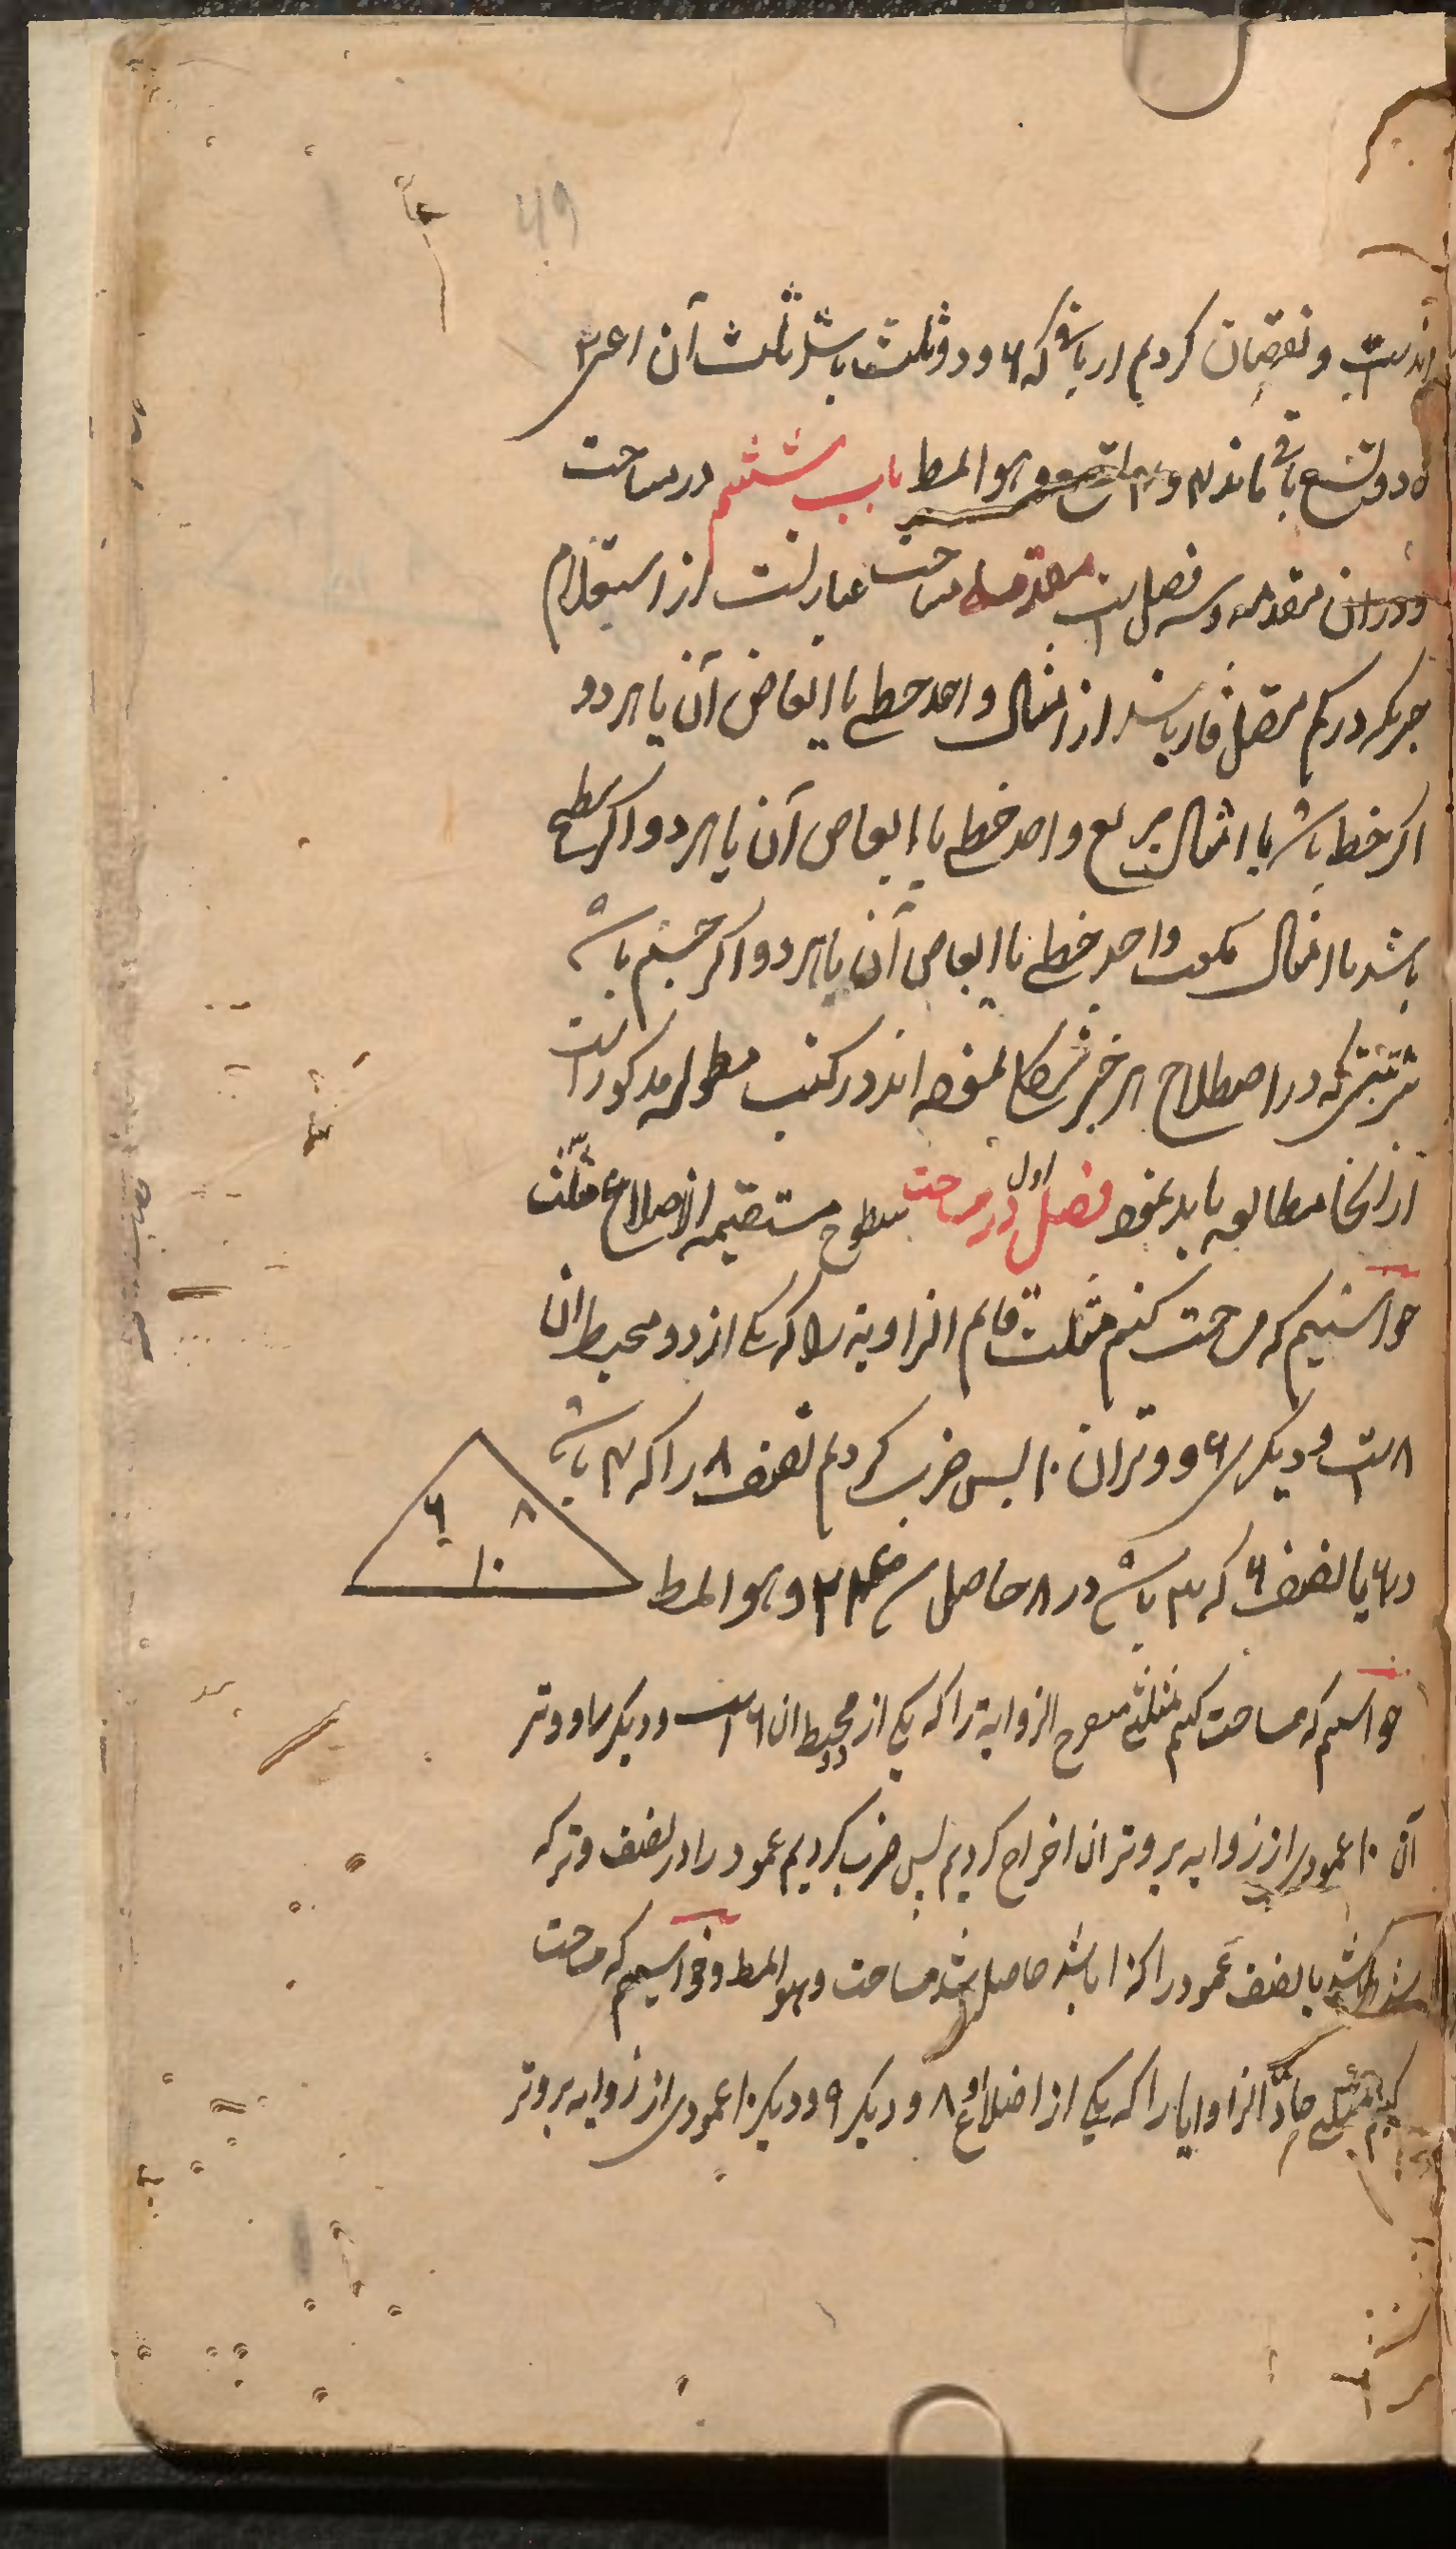 ۴۹
است و نقصان کردیم از باقی که ۶ و دو ثلث باشد ثلث آن اعنی ۲
و دو تسع باقی ماند ۴ و ۴ اتساع و هو المط باب ششم در مساحت
و دران مقدمه و سه فصل است مقدمه مساحت عبارتست از استعلام
چیزیکه در کم متصل قار باشد از امثال واحد خطی یا ابعاض آن یا هر دو
اکر خط باشد یا امثال مربع واحد خطی یا ابعاض آن یا هر دو اکر سطح
باشد یا امثال مکعب واحد خطی یا ابعاض آن یا هر دو اکر جسم باشد
که در اصطلاح هر اند در کتب مطوله مذکور است
از انجا مطالعه باید نمود فصل اول در مساحت سطوح مستقیمه الاضلاع مثلث
خواستیم که مساحت کنیم مثلث قایم الزاویه را که یکی از دو محیط ان
۸ است و دیکری ۶ و وتر ان ۱۰ پس ضرب کردیم نصف ۸ را که ۴ باشد
در ۶ یا نصف ۶ که ۳ باشد در ۸ حاصل شد ۲۴ و هو المط
۶ ۸
۱۰
خواستیم که مساحت کنیم مثلثی منفرج الزوایه را که یکی از دو محیط ان ۶ است و دیکر و وتر
آن ۱۰ عمودی از زوایه بر وتر ان اخراج کردیم پس ضرب کردیم عمود را در نصف وتر که
باشد یا نصف عمود را که باشد حاصل شد مساحت و هو المط و خواستیم که مساحت
کنیم مثلثی حادّ الزوایا را که یکی از اضلاع او ۸ و دیکر ۹ و دیکر ۱۰ عمودی از زوایه بر وتر